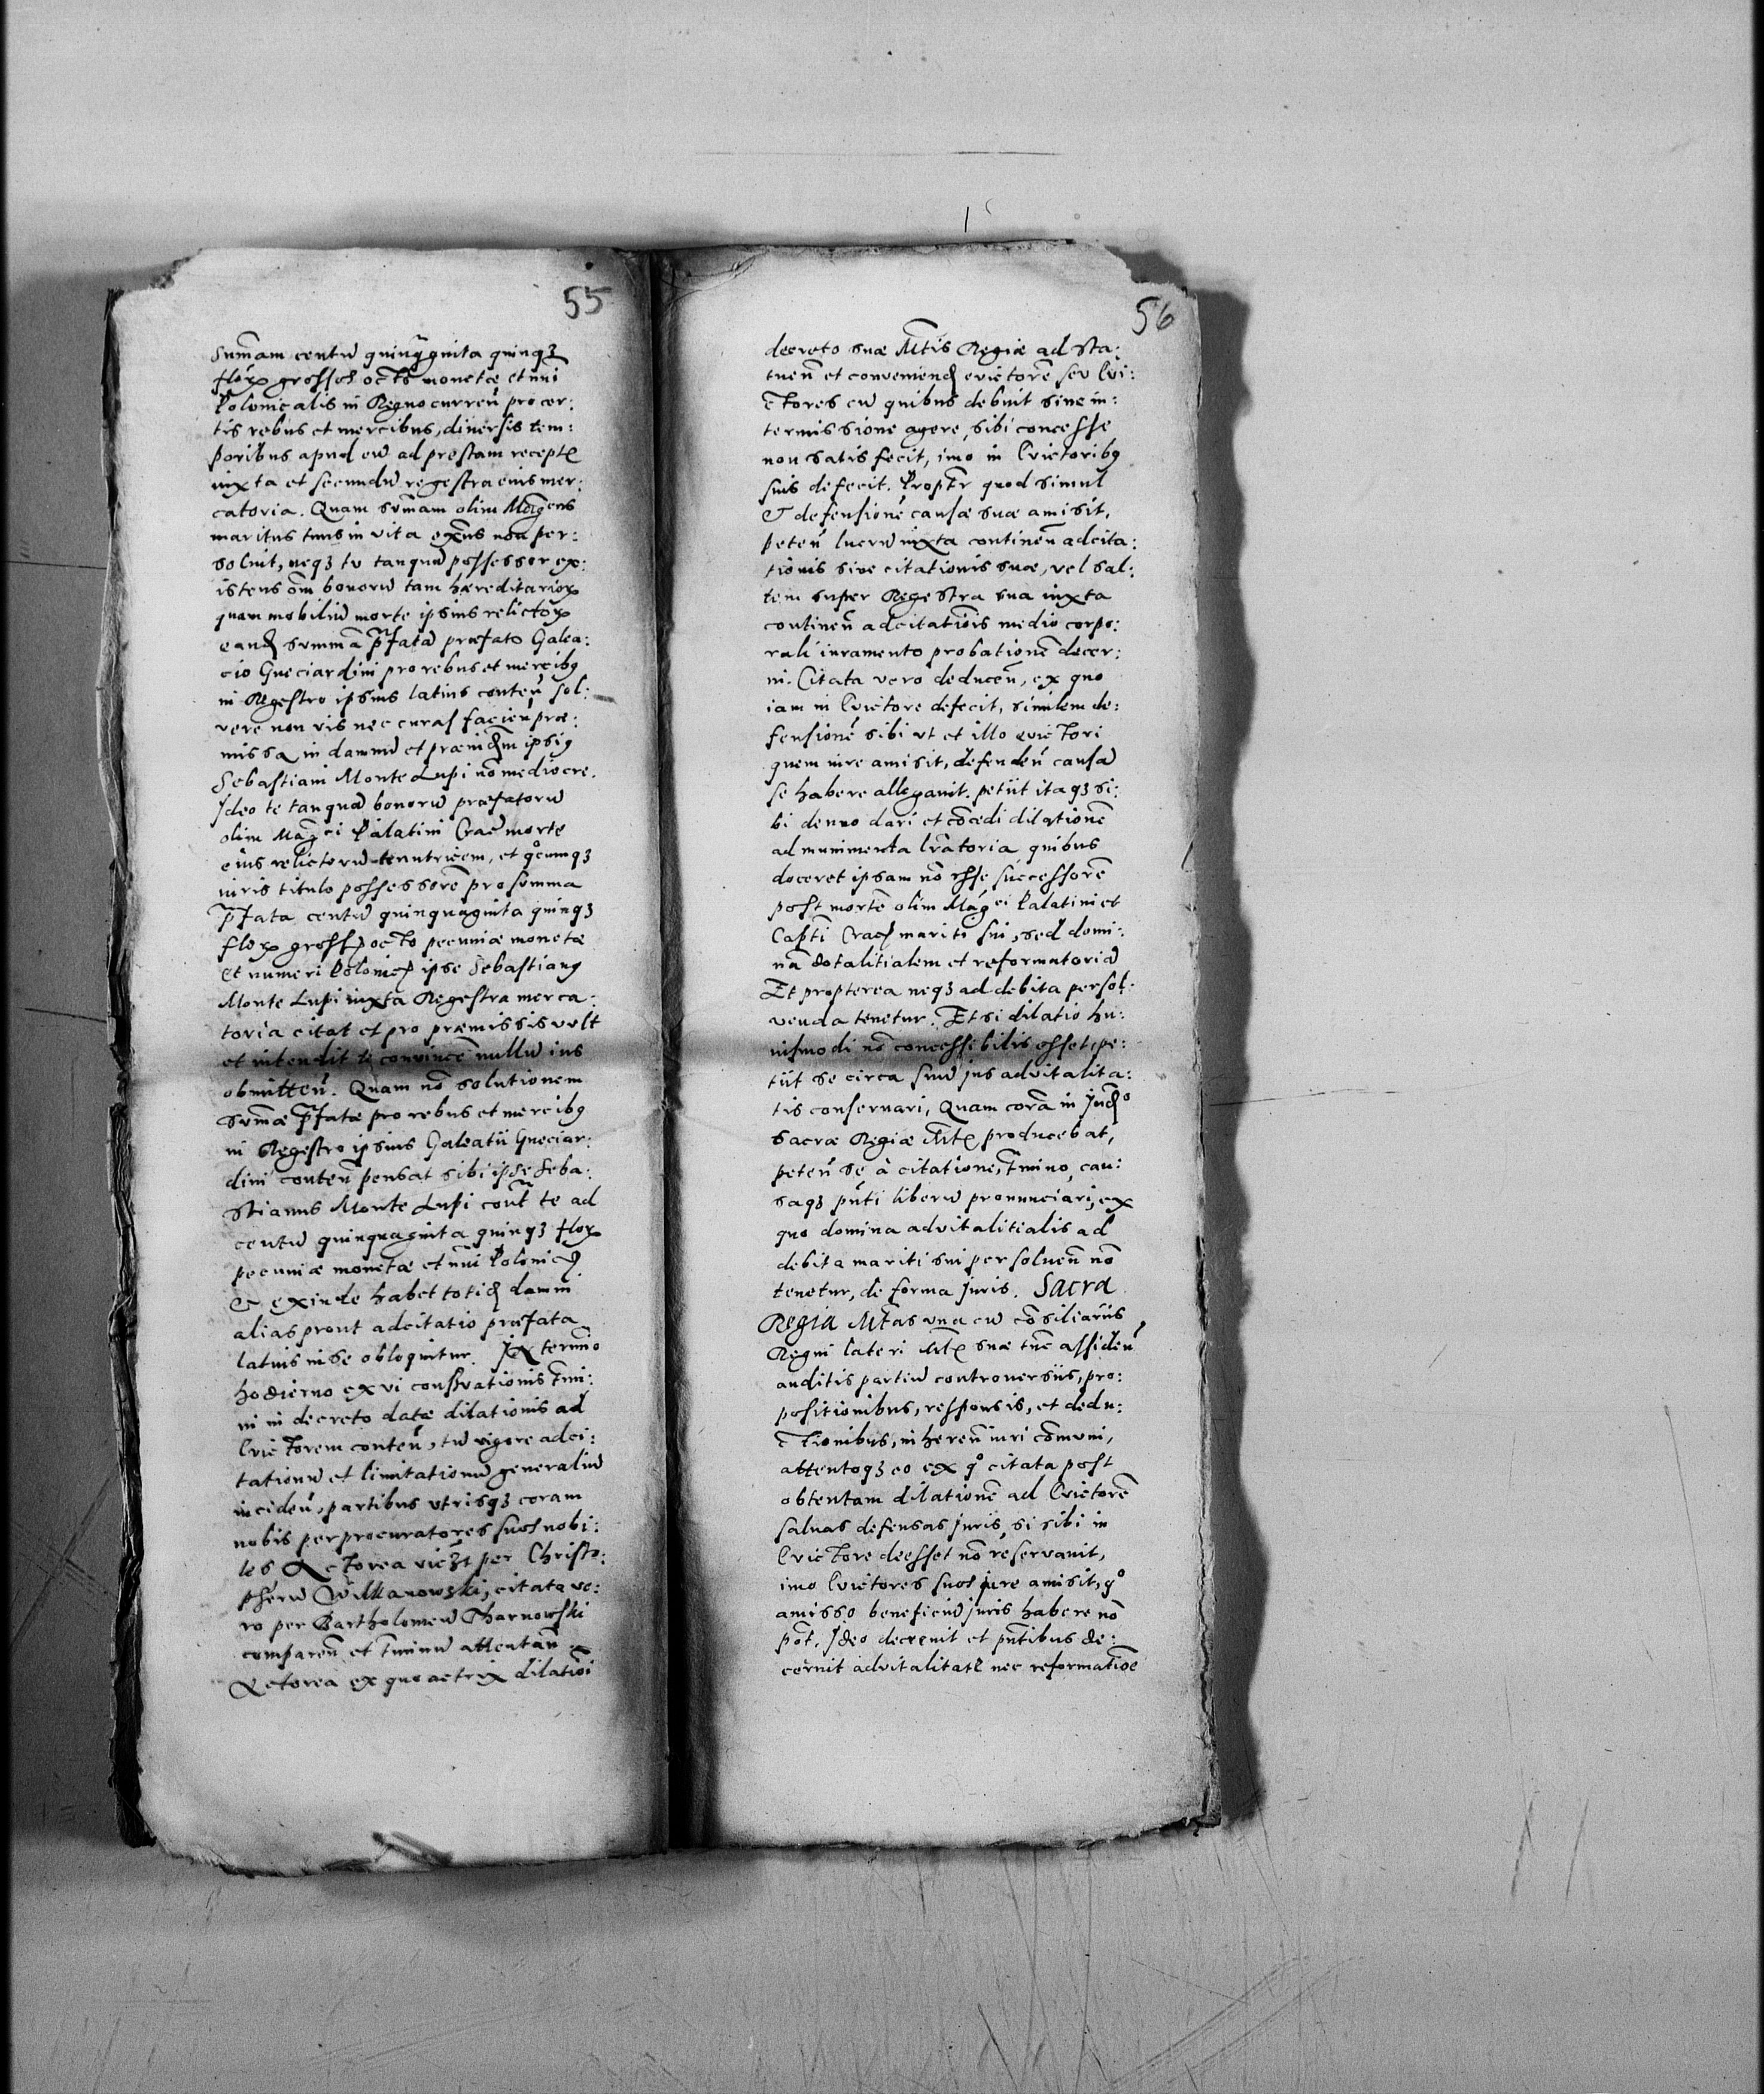 55
sum̃am centũ quinq̃ginta quinqꝫ
florꝝ grossos octo monetæ et nũi
Polonicalis in Regno curreñ pro cer:
tis rebus et mercibus, diuersis tem:
poribus apud eũ ad prestam recept
iuxta et secundũ regestra eius mer:
catoria. Quam sum̃am olim Mag̃cus
maritus tuus in vita ex̃ns non per:
soluit, neqꝫ tu tanquã possessor ex:
istens om̃ bonorũ tam hæreditariorꝝ
quam mobiliũ morte ipsius relictorꝝ
eanđ summã p̃fatã præfato Galea:
cio Gueciardini pro rebus et mercibꝯ
in Regestro ipsius latius conteñ sol:
vere non vis nec curas facieñ præ:
missa in damnũ et præiuđm ipsiꝯ
Sebastiani Monte Lupi nõ mediocre.
Ideo te tanquã bonorũ præfatorũ
olim Mag̃ci Palatini Crac̃ morte
eius relictorũ tenutricem, et qͦcumqꝫ
iuris titulo possessorẽ pro summa
p̃fata centũ quinquaginta quinqꝫ
florꝝ gross octo pecuniæ monetæ
et numeri Polonic ipse Sebastianꝯ
Monte Lupi iuxta Regestra merca:
toria citat et pro præmissis vult
et intendit te convincẽ nullũ ius
obmitteñ. Quam nõ solutionem
sum̃æ p̃fatæ pro rebus et mercibꝯ
in Regestro ipsius Galeatii Gueciar:
dini conteñ pensat sibi ipse Seba:
stianus Monte Lupi cont̃ te ad
centũ quinquaginta quinqꝫ florꝝ
pecuniæ monetæ et nũi Polonic
& exinde habet totiđ damñ
alias prout adcitatio præfata
latius in se obloquitur. In termĩo
hodierno ex vi conservationis t̃mi:
ni in decreto datæ dilationis ad
Evictorem conteñ, tũ vigore adci:
tationũ et limitationũ generaliũ
incideñ, partibus utrisqꝫ coram
nobis per procuratores suos nobi:
les Actorea vicꝫt per Christo:
pherũ Wilkanowski, citata ve:
ro per Bartholomeũ Tharnowski
compareñ et t̃minũ attentañ.
Actorea ex quo actrix dilatioĩ
56
decreto suæ M̃tis Regiæ ad sta:
tueñ et convenienđ evictorẽ seu Evi:
ctores cũ quibus debuit sine in:
termissione agere, sibi concesse
non satis fecit, imo in Evictoribꝯ
suis defecit. Propt̃r quod simul
& defensionẽ causæ suæ amisit,
peteñ lucrũ iuxta contineñ adcita:
tionis sive citationis suæ, vel sal:
tem super Regestra sua iuxta
contineñ adcitatiõis medio corpo:
rali iuramento probationẽ decer:
ni. Citata vero deduceñ, ex quo
iam in Evictore defecit, similem de:
fensionẽ sibi ut et illo evictori
quem iure amisit, defendeñ causã
se habere allegavit. petiit itaqꝫ si:
bi denuo dari et cõcedi dilationẽ
ad munimenta lr̃atoria quibus
doceret ipsam nõ esse successorẽ
post mortẽ olim Mag̃ci Palatini et
Capt̃i Crac mariti sui, sed domi:
nã dotalitialem et reformatoriã
Et propterea neqꝫ ad debita persol:
venda tenetur. Et si dilatio hu:
iusmodi nõ concessibilis esset, pe:
tiit se circa suũ jus advitalita:
tis conservari, Quam corã in Judͦ
sacræ Regiæ M̃t producebat,
peteñ se à citatione, t̃mino, cau:
saqꝫ pñti liberũ pronunciari, ex
quo domina advitalitialis ad
debita mariti sui persolueñ nõ
tenetur, de forma juris. Sacra
Regia M̃tas una cũ cõsiliariis
Regni lateri M̃t suæ tũc assideñ,
auditis partiũ controversiis, pro:
positionibus, responsis, et dedu:
ctionibus, inhereñ iuri cõmuni,
attentoqꝫ eo ex qͦ citata post
obtentam dilationẽ ad Evictorẽ
salvas defensas juris, si sibi in
Evictore deesset nõ reservavit,
imo Evictores suos jure amisit, qͦ
amisso beneficiũ juris habere nõ
põt. Ideo decrevit et pñtibus de:
cernit advitalitat nec reformatiõe